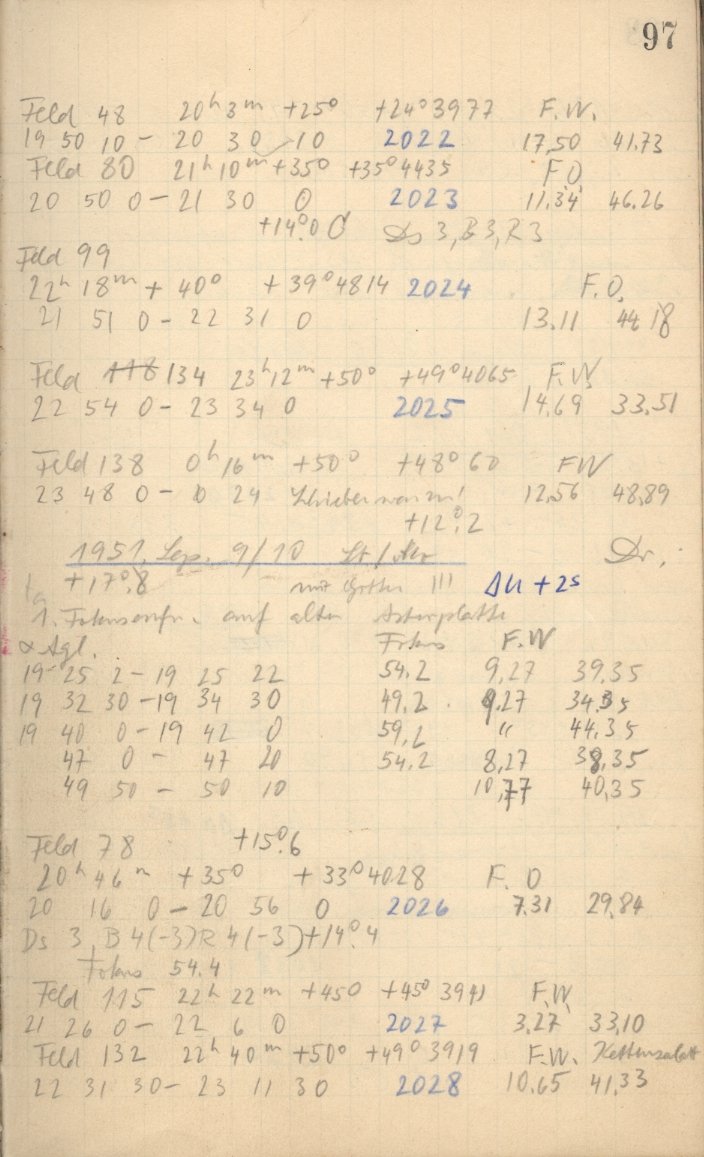 97
Feld 48 20h 3m +25° +24°3977 F.W.
19 50 10 - 20 30 10 2022 17,50 41.73
Feld 80 21h 10m +35° +35°4435 F.O.
20 50 0 - 21 30 0 2023 11.34 46.26
+14°.0 C Ds 3, B 3, R 3
Feld 99
22h 18m + 40° + 39°4814 2024 F.O.
21 51 0 - 22 31 0 13.11 44.18
Feld 118 134 23h 12m +50° +49°4065 F.W.
22 54 0 - 23 34 0 2025 14.69 33.51
Feld 138 0h 16m +50° +48°60 FW
23 48 0 - 0 24 Schieber war zu! 12,56 48,89
+12°.2
1951 Sep. 9/10 Dr.
+17°.8 mit Gitter !!! ΔU + 2s
1. Fokusaufn. auf alter Astroplatte
α Aql. Fokus F.W
19 25 2 - 19 25 22 54.2 9,27 39.35
19 32 30 - 19 34 30 49.2 9.27 34.35
19 40 0 - 19 42 0 59,2 " 44,35
47 0 - 47 20 54.2 8,27 38,35
49 50 - 50 10 10,77 40,35
Feld 78 +15°.6
20h 46m +35° + 33°4028 F. O
20 16 0 - 20 56 0 2026 7.31 29,84
Ds 3, B 4(-3) R 4(-3) +14°.4
Fokus 54.4
Feld 115 22h 22m +45° +45°3941 F.W.
21 26 0 - 22 6 0 2027 3,27 33,10
Feld 132 22h 40m +50° +49°3919 F.W. Kettensalat
22 31 30 - 23 11 30 2028 10.65 41,33